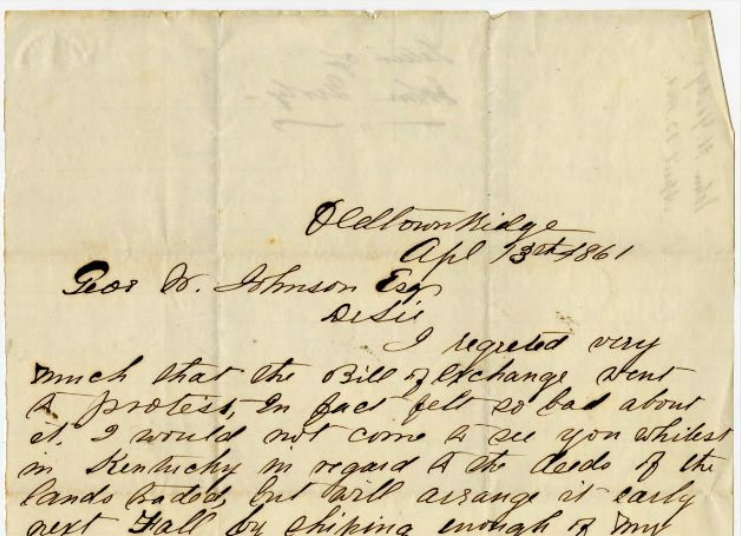 Oldtown Ridge
Apl 13th 1861
Geor W. Johnson Esq
Dr Sir
I regreted very
much that the Bill of Exchange went
to protest, In fact felt so bad about
it. I would not come to see you whilest
in Kentucky in regard to the deeds of the
lands traded, but will arrange it early
next Fall by shiping enough of my